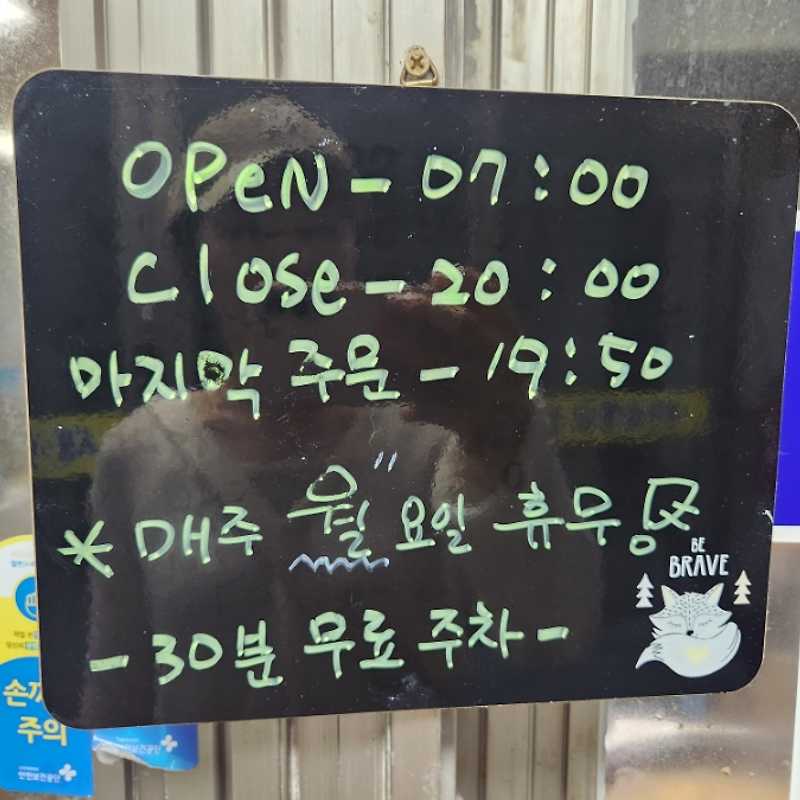 OPeN - 07:00
Close - 20:00
마지막 주문 - 19:50
* 매주 월"요일 휴무
BE
BRAVE
- 30분 무료 주차 -
주의
안전보건공단